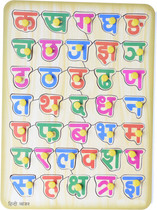 क ख ग घ ङ
च छ ज झ ञ
ट ठ ड ढ ण
त थ द ध न
प फ ब भ म
य र ल व श ष
स ह क्ष त्र ज्ञ
हिन्दी अक्षर